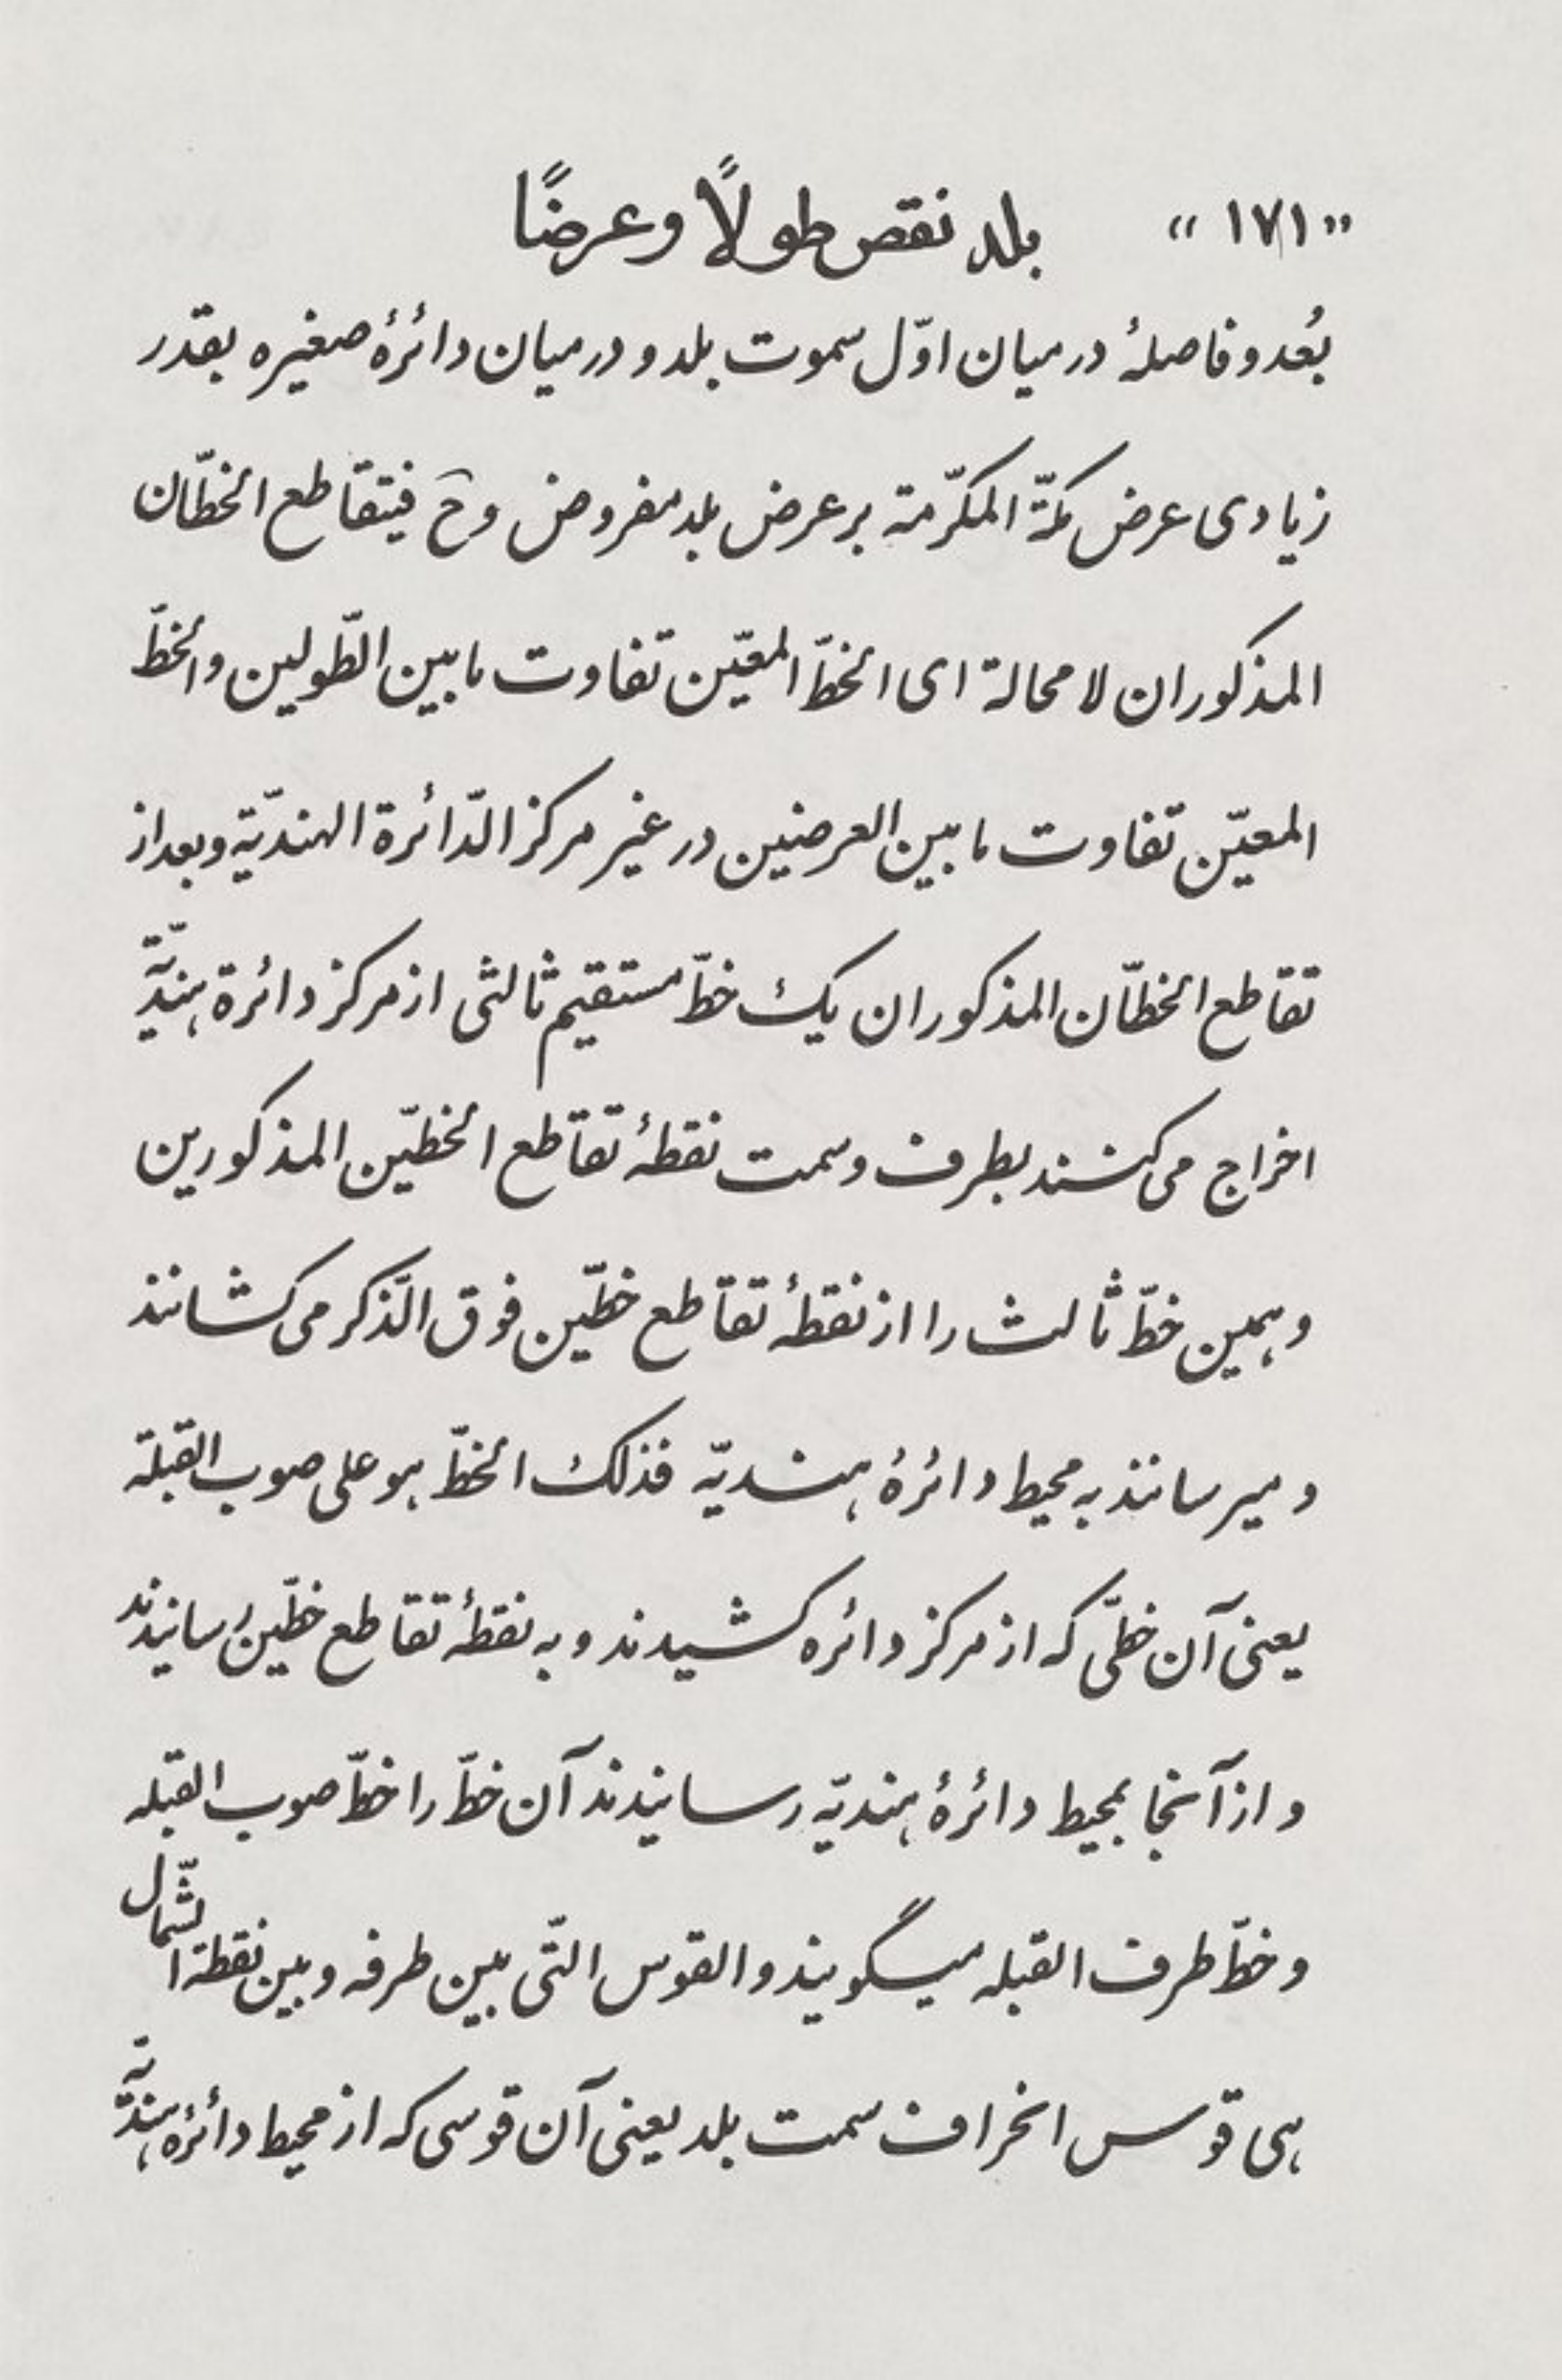 «۱۷۱» بلد نقص طولاً وعرضًا
بُعد و فاصلهٔ درمیان اوّل سموت بلد و درمیان دائرهٔ صغیره بقدر
زیادی عرض مکّة المکرّمة بر عرض بلد مفروض وحَ فیتقاطع الخطّان
المذکوران لا محالة ای الخطّ المعیّن تفاوت مابین الطّولین والخطّ
المعیّن تفاوت مابین العرضین در غیر مرکز الدّائرة الهندیّة وبعد از
تقاطع الخطّان المذکوران یک خطّ مستقیم ثالثی از مرکز دائرة هندیّة
اخراج می کنند بطرف وسمت نقطهٔ تقاطع الخطّین المذکورین
وهمین خطّ ثالث را از نقطهٔ تقاطع خطّین فوق الذّکر می کشانند
و میرسانند به محیط دائرهٔ هندیّه فذلک الخطّ هو علی صوب القبلة
یعنی آن خطّی که از مرکز دائره کشیدند و به نقطهٔ تقاطع خطّین رسانیدند
و از آنجا بمحیط دائرهٔ هندیّه رسانیدند آن خطّ را خطّ صوب القبله
وخطّ طرف القبله میگویند والقوس الّتی بین طرفه وبین نقطة الشّمال
هی قوس انحراف سمت بلد یعنی آن قوسی که از محیط دائرهٔ هندیّة